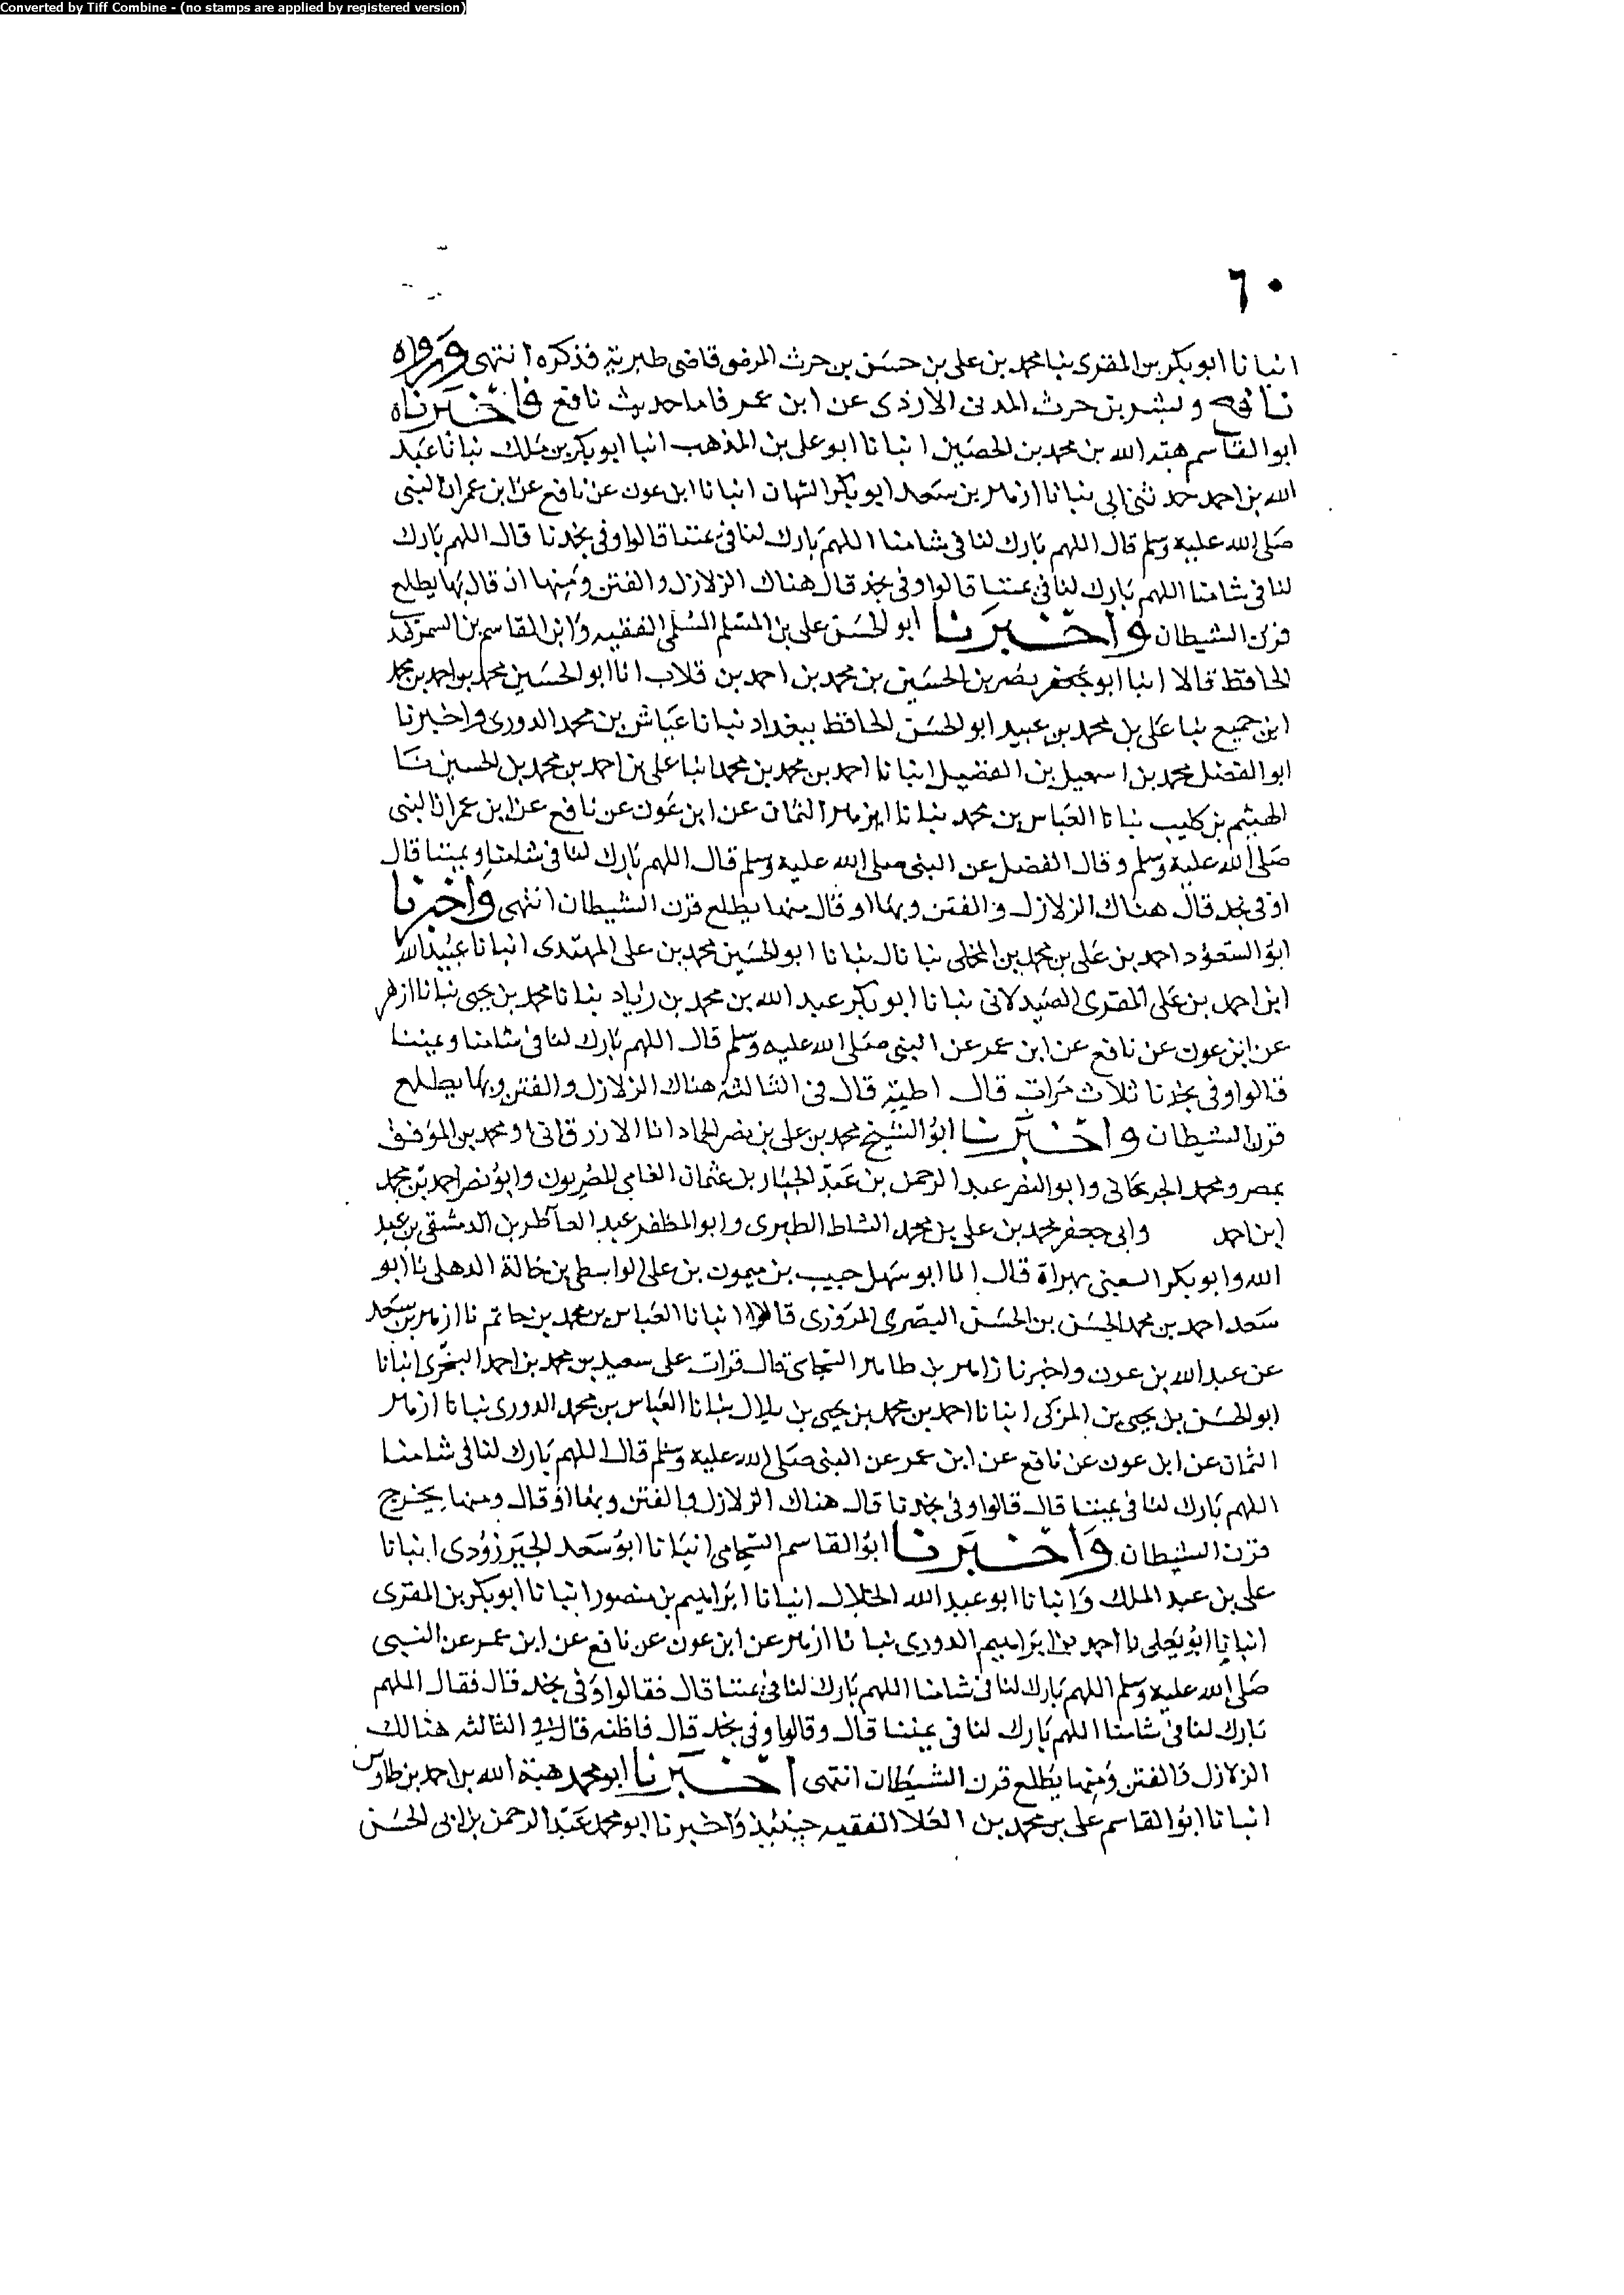 Converted by Tiff Combine - (no stamps are applied by registered version)
٦٠
انبانا ابو بكر بن المقرى نبا محمد بن على بن حسن بن حرث المرفق قاضى طبرية فذكره انتهى ورواه
نافع وبشر بن حرث المدنى الازدى عن ابن عمر فاما حديث نافع فاخبرناه
ابو القاسم هبة الله بن محمد بن الحصين انبانا ابو على بن المذهب انبا ابو بكر بن ملك نبانا عبد
الله بن احمد حدثنى ابى نبانا ازهر بن سعد ابو بكر السمان انبانا ابن عون عن نافع عن ابن عمر ان النبى
صلى الله عليه وسلم قال اللهم بارك لنا فى شامنا اللهم بارك لنا فى يمننا قالوا وفى نجدنا قال اللهم بارك
لنا فى شامنا اللهم بارك لنا فى يمننا قالوا وفى نجد قال هناك الزلازل والفتن ومنها اذ قال بها يطلع
قرن الشيطان واخبرنا ابو الحسن على بن المسلم السلمى الفقيه وابن القاسم بن السمرقندى
الحافظ قالا انبا ابو جعفر نصر بن الحسين بن محمد بن احمد بن قلاب انا ابو الحسين محمد بن احمد بن محمد
ابن جميع نبا على بن محمد بن عبيد ابو الحسن الحافظ ببغداد نبانا عباس بن محمد الدورى واخبرنا
ابو الفضل محمد بن اسمعيل بن الفضيل انبانا احمد بن محمد بن محمد انبا على بن احمد بن محمد بن الحسين نا
الهيثم بن كليب نبانا العباس بن محمد نبانا ازهر السمان عن ابن عون عن نافع عن ابن عمر ان النبى
صلى الله عليه وسلم وقال الفضل عن النبى صلى الله عليه وسلم قال اللهم بارك لنا فى شامنا ويمننا قال
اوفى نجد قال هناك الزلازل والفتن وبها او قال منها يطلع قرن الشيطان انتهى واخبرنا
ابو السعود احمد بن على بن محمد بن المجلى نبانا ابو الحسين محمد بن على المهتدى انبانا عبيد الله
ابن احمد بن على المقرى الصيدلانى نبانا ابو بكر عبد الله بن محمد بن زياد نبانا محمد بن يحيى نبانا ازهر
عن ابن عون عن نافع عن ابن عمر عن النبى صلى الله عليه وسلم قال اللهم بارك لنا فى شامنا ويمننا
قالوا وفى نجدنا ثلاث مرات قال اظنه قال فى الثالثة هناك الزلازل والفتن وبها يطلع
قرن الشيطان واخبرنا ابو الشيخ محمد بن على بن نصر الحاد انا الازرقانى ومحمد بن الموفق
بمصر ومحمد الجرجانى وابو النضر عبد الرحمن بن عبد الجبار بن عثمان الفامى للضربون وابو نصر احمد بن محمد
ابن احمد وابى جعفر محمد بن على بن محمد الطبرى وابو المظفر عبد بن الدمشقى بن عبد
الله وابو بكر بهراة قال انا ابو سهل حبيب بن ميمون بن على الواسطى بن خالة الدهلى نا ابو
سعد احمد بن محمد الحسن بن الحسن البصرى المروزى قالوا انبانا العباس بن محمد بن حاتم نا ازهر بن سعد
عن عبد الله بن عون واخبرنا زاهر بن طاهر الشحامى قال قرات على سعيد بن محمد بن احمد البحرى انبانا
ابو الحسن بن يحيى بن المزكى انبانا احمد بن محمد بن يحيى بن بلال نبانا العباس بن محمد الدورى نبانا ازهر
السمان عن ابن عون عن نافع عن ابن عمر عن النبى صلى الله عليه وسلم قال اللهم بارك لنا فى شامنا
اللهم بارك لنا فى يمننا قال قالوا وفى نجدنا قال هناك الزلازل والفتن وبها او قال ومنها يخرج
قرن الشيطان واخبرنا ابو القاسم الشحامى انبانا ابو سعد الجنزرودى انبانا
على بن عبد الملك وانبانا ابو عبد الله الخلال انبانا ابراهيم بن منصور انبانا ابو بكر بن المقرى
انبانا ابو يعلى نا احمد بن ابراهيم الدورى نبانا ازهر عن ابن عون عن نافع عن ابن عمر عن النبى
صلى الله عليه وسلم اللهم بارك لنا فى شامنا اللهم بارك لنا فى يمننا قال فقالوا وفى نجد قال فقال اللهم
بارك لنا فى شامنا اللهم بارك لنا فى يمننا قال وقالوا وفى نجد قال فاظنه قال فى الثالثه هنالك
الزلازل والفتن ومنها يطلع قرن الشيطان انتهى اخبرنا ابو محمد هبة الله بن احمد بن طاوس
انبانا ابو القاسم على بن محمد بن العلا الفقيه حينئذ واخبرنا ابو محمد عبد الرحمن بن ابى الحسن